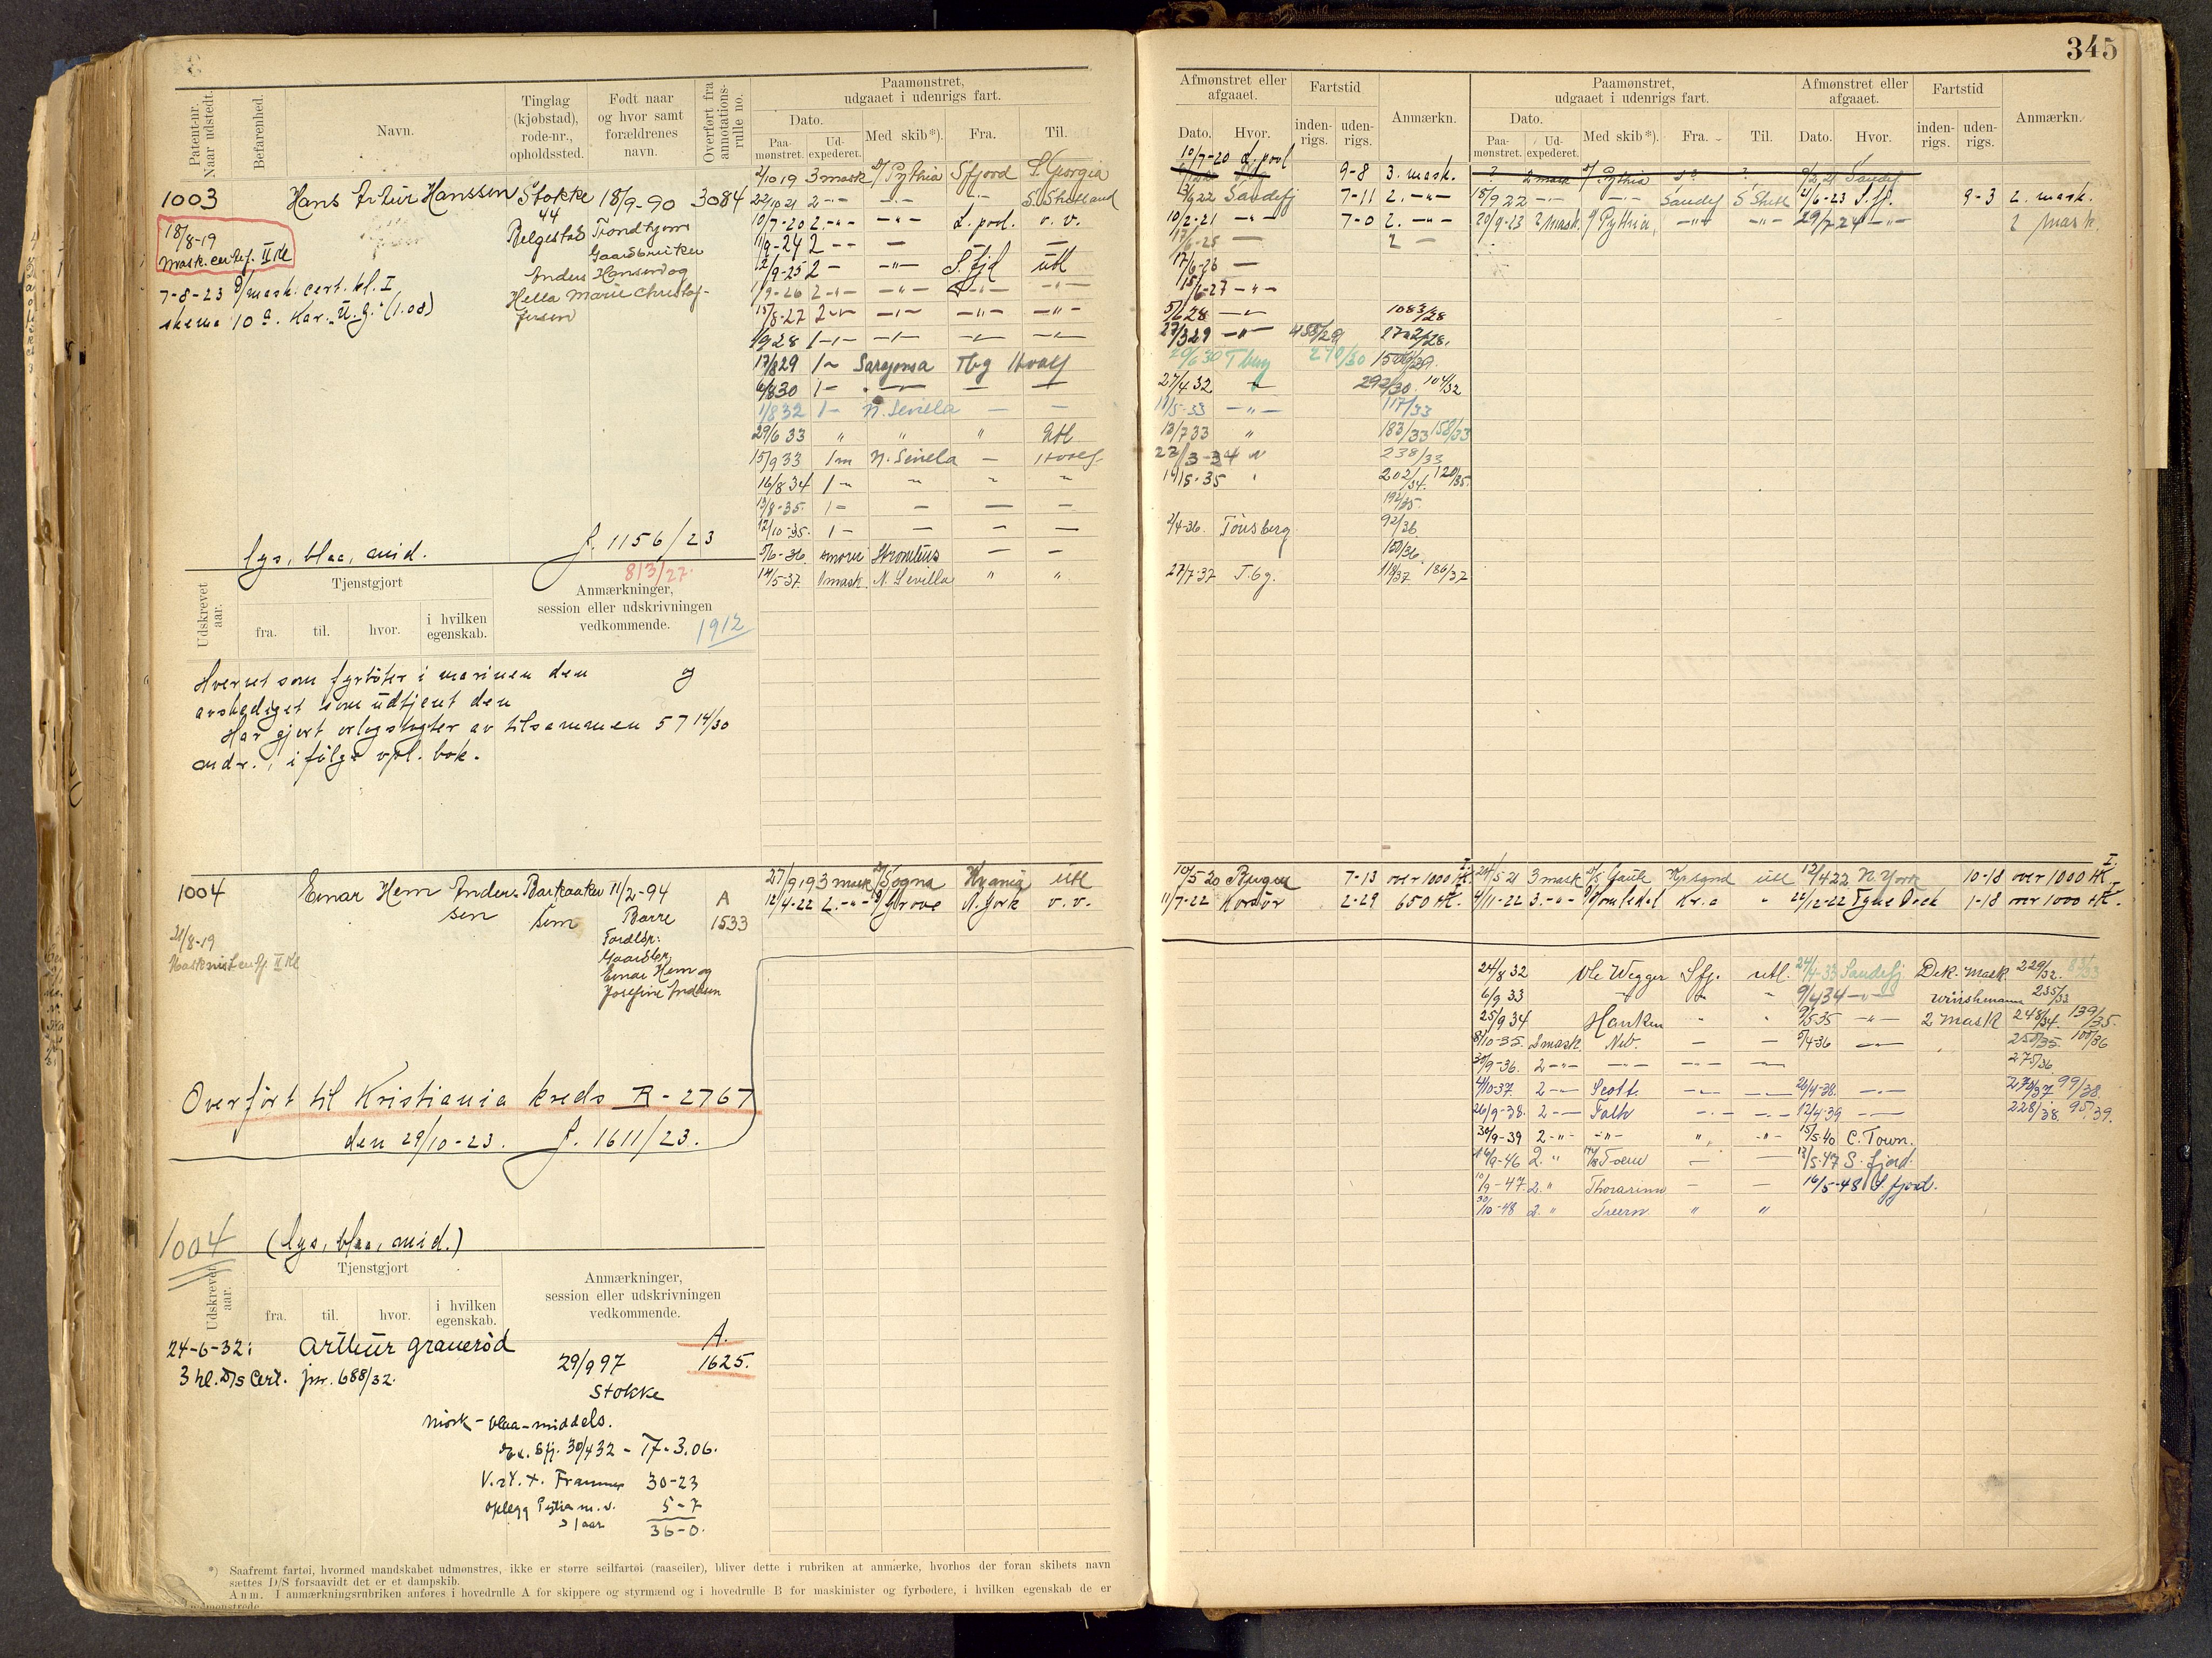 345
Patent-nr. Naar udstedt.
Befarenhed.
Navn.
Tinglag (kjøbstad), rode-nr., opholdssted.
Født naar og hvor samt forældrenes navn.
Overført fra annotationsrulle no.
Paamønstret, udgaaet i udenrigs fart.
Dato.
Paamønstret.
Udexpederet.
Med skib*).
Fra.
Til.
Afmønstret eller afgaaet.
Dato.
Hvor.
Fartstid
indenrigs.
udenrigs.
Anmærkn.
Paamønstret, udgaaet i udenrigs fart.
Dato.
Paamønstret.
Udexpederet.
Med skib*).
Fra.
Til.
Afmønstret eller afgaaet.
Dato.
Hvor.
Fartstid
indenrigs.
udenrigs.
Anmærkn.
1003 Hans Artur Hanssen Stokke 18/9-90 3084
44
18/8-19
Mask. certf. II kl
Trondhjem
Gaardbruker
Anders Hansen og
Hella Marie Christof-
fersen
7-8-23 mask. cert. kl. I
skema 10a. Kar. "U.g." (1.08)
3 mask D/ Pythia Sfjord S. Georgia
22/10 21 2 -"- S. Shetland
10/7-20 2 -"- -"- L. pool. v. v.
1/9-24 2 -- —
2/9-25 2 — -"- S. fjd utl
1/9-26 2 -"- -"- -"- -"-
15/8-27 2 -"- -"- -"- -"-
1/9 28 1 -"- -"-
17/8 29 1 — Saragossa Tbg Hvalf
6/8 30 1 — — — —
1/8 32 1 — N. Sevilla — —
29/6 33 " " " Utl
15/9 33 1 m N. Sevilla — Hvalf
16/8 34 1 —
13/8-35. 1 — — — —
12/10-35. 1 — — — —
5/6-36 — —
14/5-37 1 mask. N. Sevilla " "
10/7-20 L. pool 9-8 3. mask.
Sandefj 7-11 2. -"-
10/2-21 -"- 7-0 2. -"-
17/6-25 — 2 —
17/6-26 —
15/6-27 -"-
5/6 28 1083/28
27/3 29 -"- 455/29 2702/28.
20/6 30 Tberg 270/30
27/4 32 292/30. 104/32
11/5-33 -"- 117/33
13/7 33 " 183/33 158/33
22/3-34 238/33
14/5-35 202/34. 120/35.
192/35.
2/4-36. Tønsberg 92/36
150/36.
27/7-37 T.bg. 118/37 186/37
? 2 mask D/ Pythia ?
15/9 22 -"- -"- Sandef S Shetl 4/6-23 S. fj. 9-3 2. mask.
20/9-23 2 mask. Pythia, -"- -"- 29/7-24 -"- 2 mask.
lys, blaa, mid.
J. 1156/23
813/27.
Udskrevet aar.
Tjenstgjort
fra.
til.
hvor.
i hvilken egenskab.
Anmærkninger, session eller udskrivningen vedkommende.
1912
Hvervet som fyrbøter i marinen den og
avskediget som udtjent den
Har gjort orlogstogter av tilsammen 57 14/30
mdr., i følge vpl. bok.
1004 Einar Hem Anders- Barkaaker 11/2-94 A
sen Sem Borre 1533
Foreldr:
Gaardbr.
Einar Hem og
Josefine Andersen
21/8-19
Maskinistcertf. II Kl
27/9 19 3 mask D/ Sogna Kr.ania utl
12/4-22 2. -"- D/ Grove N. York v. v.
10/5-20 7-13 over 1000 HK.
11/7-22 Korsör 2-29 650 HK.
24/5 21 3 mask D/S Gaute Kr.sand utl 12/4 22 N. York 10-18 over 1000 HK.
4/11-22 3. -"- D/ Romsdal Kr.a " 22/12-22 Tyne Dock 1-18 over 1000 HK.
24/8 32 Ole Wegger Sfj. utl. 24/4-33 Sandefj Dek. mask. 229/32.
6/9 33 " " 9/4 34 235/33
25/9 34 Hauken " " 9/5 35 -"- 2 mask 248/34. 139/35.
8/10-35. 2 mask. Neb. — — 5/4-36 250/35. 100/36
30/9-36. 2 -"- 275/36.
4/10-37. 2 -"- Scott. 26/4-38. -"- 279/37 99/38.
26/9-38. 2 — Falk -"- -"- 12/4-39 228/38. 95/39.
30/9-39 2 -"- -"- " -"- 15/5-40 C. Town.
16/9-46 2. " — — 13/5-47 S. fjord.
10/9-47. 2. " Thorarinn — — 16/5-48 S. fjord.
30/10-48 2. " Suern. " "
Overført til Kristiania kreds A-2767
den 29/10-23. J. 1611/23.
1004 (lys, blaa, mid.)
Udskrevet aar.
Tjenstgjort
fra.
til.
hvor.
i hvilken egenskab.
Anmærkninger, session eller udskrivningen vedkommende.
24-6-32: Arthur Graverød A.
3 kl. D/s Cert. jnr. 688/32. 29/9 97 1625.
Stokke
Mørk – blaa – middels.
Sfj. 30/4 32 – T7-3.06.
Framnes 30-23
oplegg 5-7
> 1 aar 36-0.
*) Saafremt fartøi, hvormed mandskabet udmønstres, ikke er større seilfartøi (raaseiler), bliver dette i rubriken at anmærke, hvorhos der foran skibets navn
sættes D/S forsaavidt det er et dampskib.
Anm. I anmærkningsrubriken anføres i hovedrulle A for skippere og styrmænd og i hovedrulle B for maskinister og fyrbødere, i hvilken egenskab de er